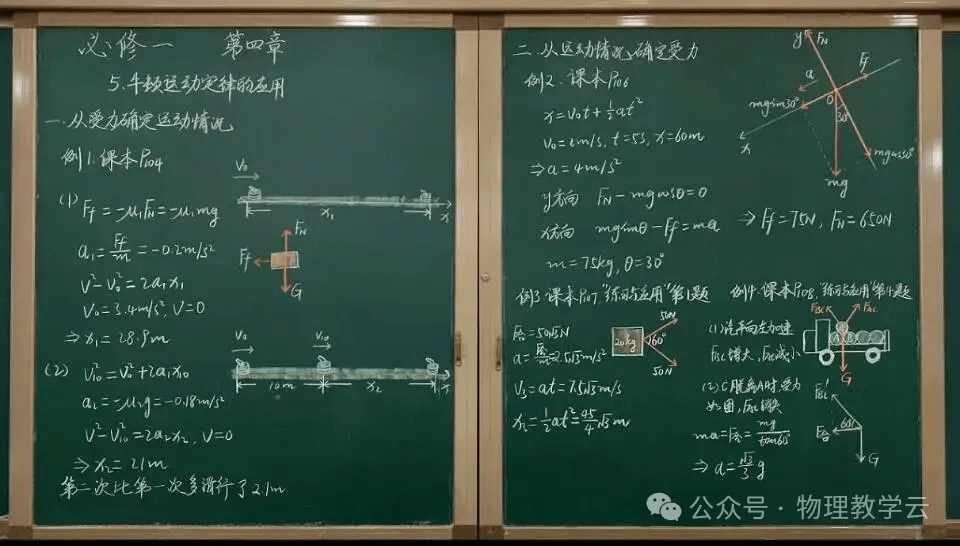 必修一 第四章
5.牛顿运动定律的应用
一.从受力确定运动情况
例1.课本P104
(1) Ff=-μ1FN=-μ1mg
a1=Ff/m=-0.2m/s²
v²-v0²=2a1x1
v0=3.4m/s, v=0
⇒x1=28.9m
(2) v10²=v0²+2a1x10
a2=-μ2g=-0.18m/s²
v²-v10²=2a2x2, v=0
⇒x2=21m
第二次比第一次多滑行了2.1m
v0
x1
x
FN
Ff
G
v0
v10
10m
x2
x
二.从运动情况确定受力
例2.课本P106
x=v0t+½at²
v0=2m/s, t=5s, x=60m
⇒a=4m/s²
y方向 FN-mgcosθ=0
x方向 mgsinθ-Ff=ma
m=75kg, θ=30°
⇒Ff=75N, FN=650N
y
FN
Ff
a
O
mgsin30°
30°
x
mgcos30°
mg
例3.课本P107,"练习与应用"第1题
F合=50√3N
a=F合/m=2.5√3m/s²
v3=at=7.5√3m/s
x3=½at²=45/4√3m
50N
20kg
60°
50N
例4.课本P108,"练习与应用"第4题
(1)汽车向左加速
FBC增大,FAC减小
(2)C脱离A时,受力
如图,FAC消失
ma=F合=mg/tan60°
⇒a=√3/3g
FBC
FAC
C
A
B
G
FBC'
60°
F合
G
公众号·物理教学云